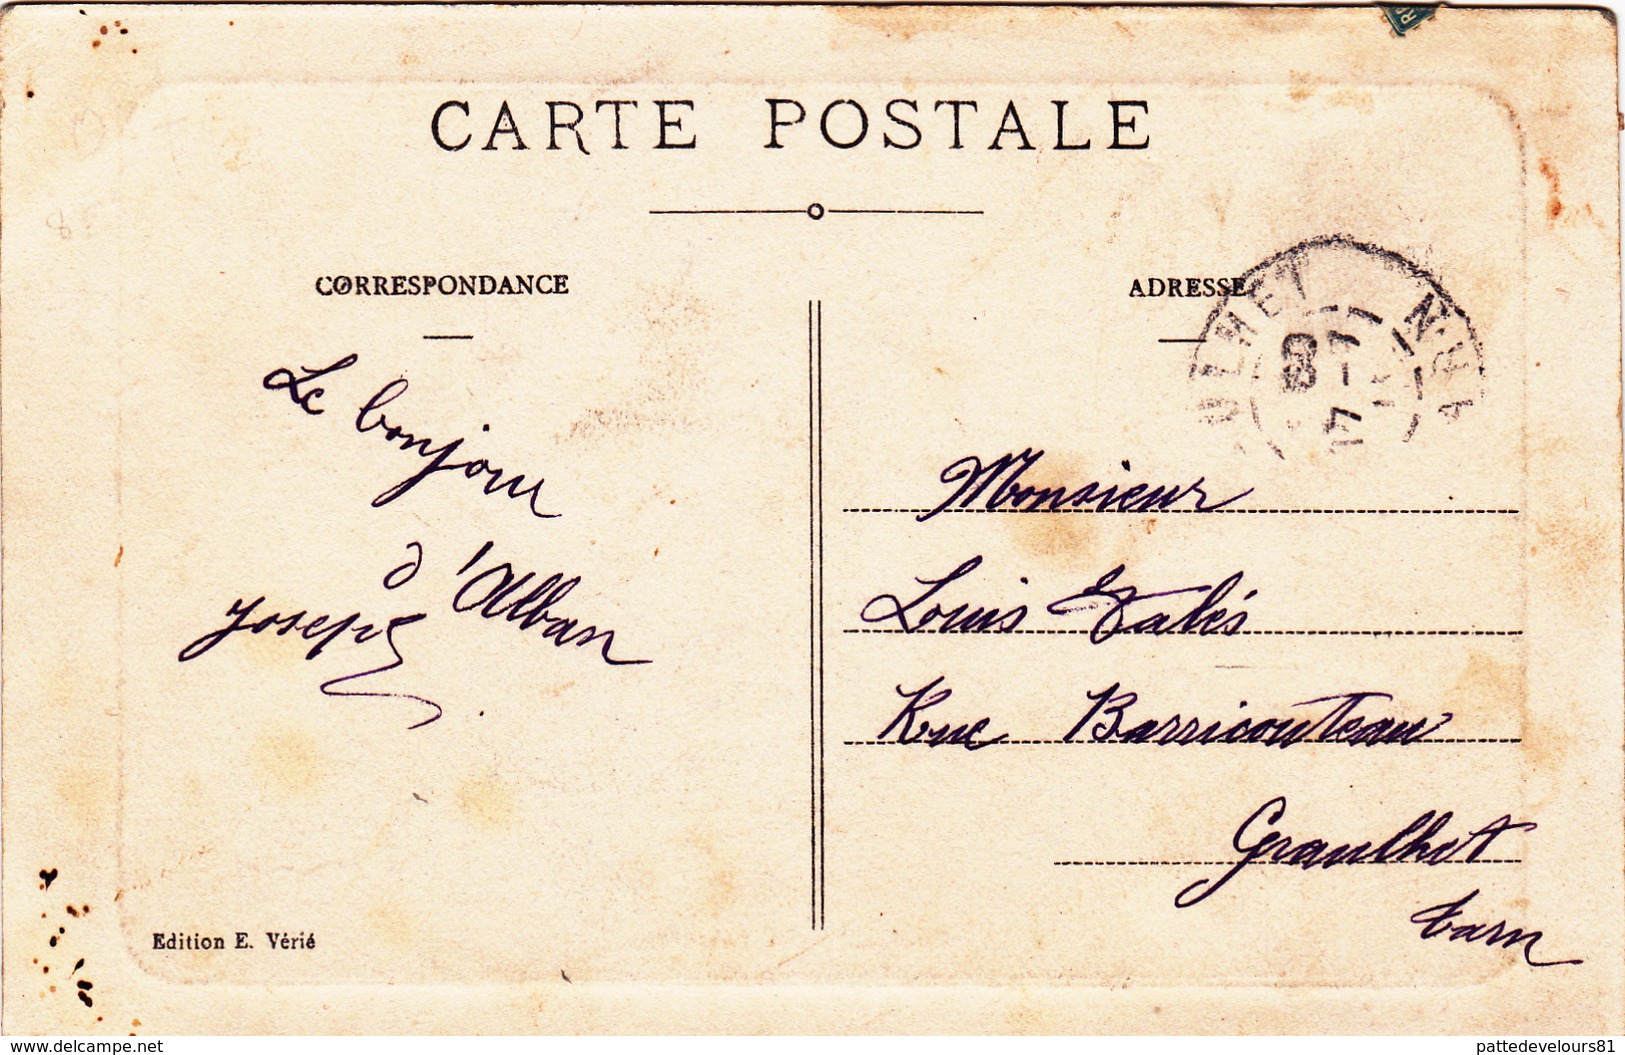 CARTE POSTALE
CORRESPONDANCE
Le bonjour
d'Alban
Joseph
Edition E. Vérié
ADRESSE
Monsieur
Louis Galés
Rue Barricouteau
Graulhet
tarn
www.delcampe.net
pattedevelours81